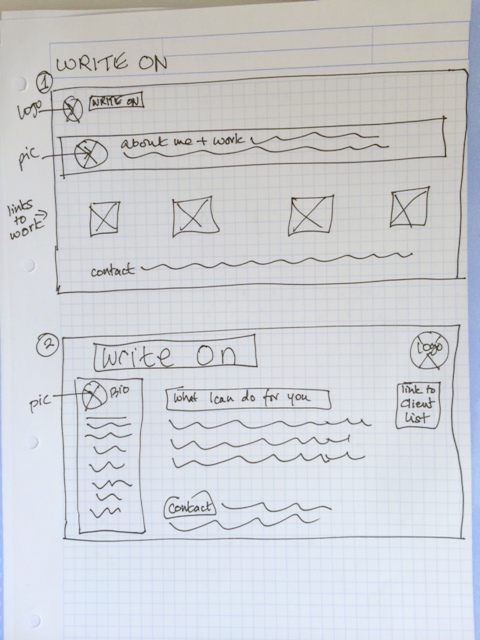 WRITE ON
1
logo
WRITE ON
pic
about me + work
links
to
work
contact
2
Write On
Logo
pic
BIO
What I can do for you
link to
Client
List
Contact